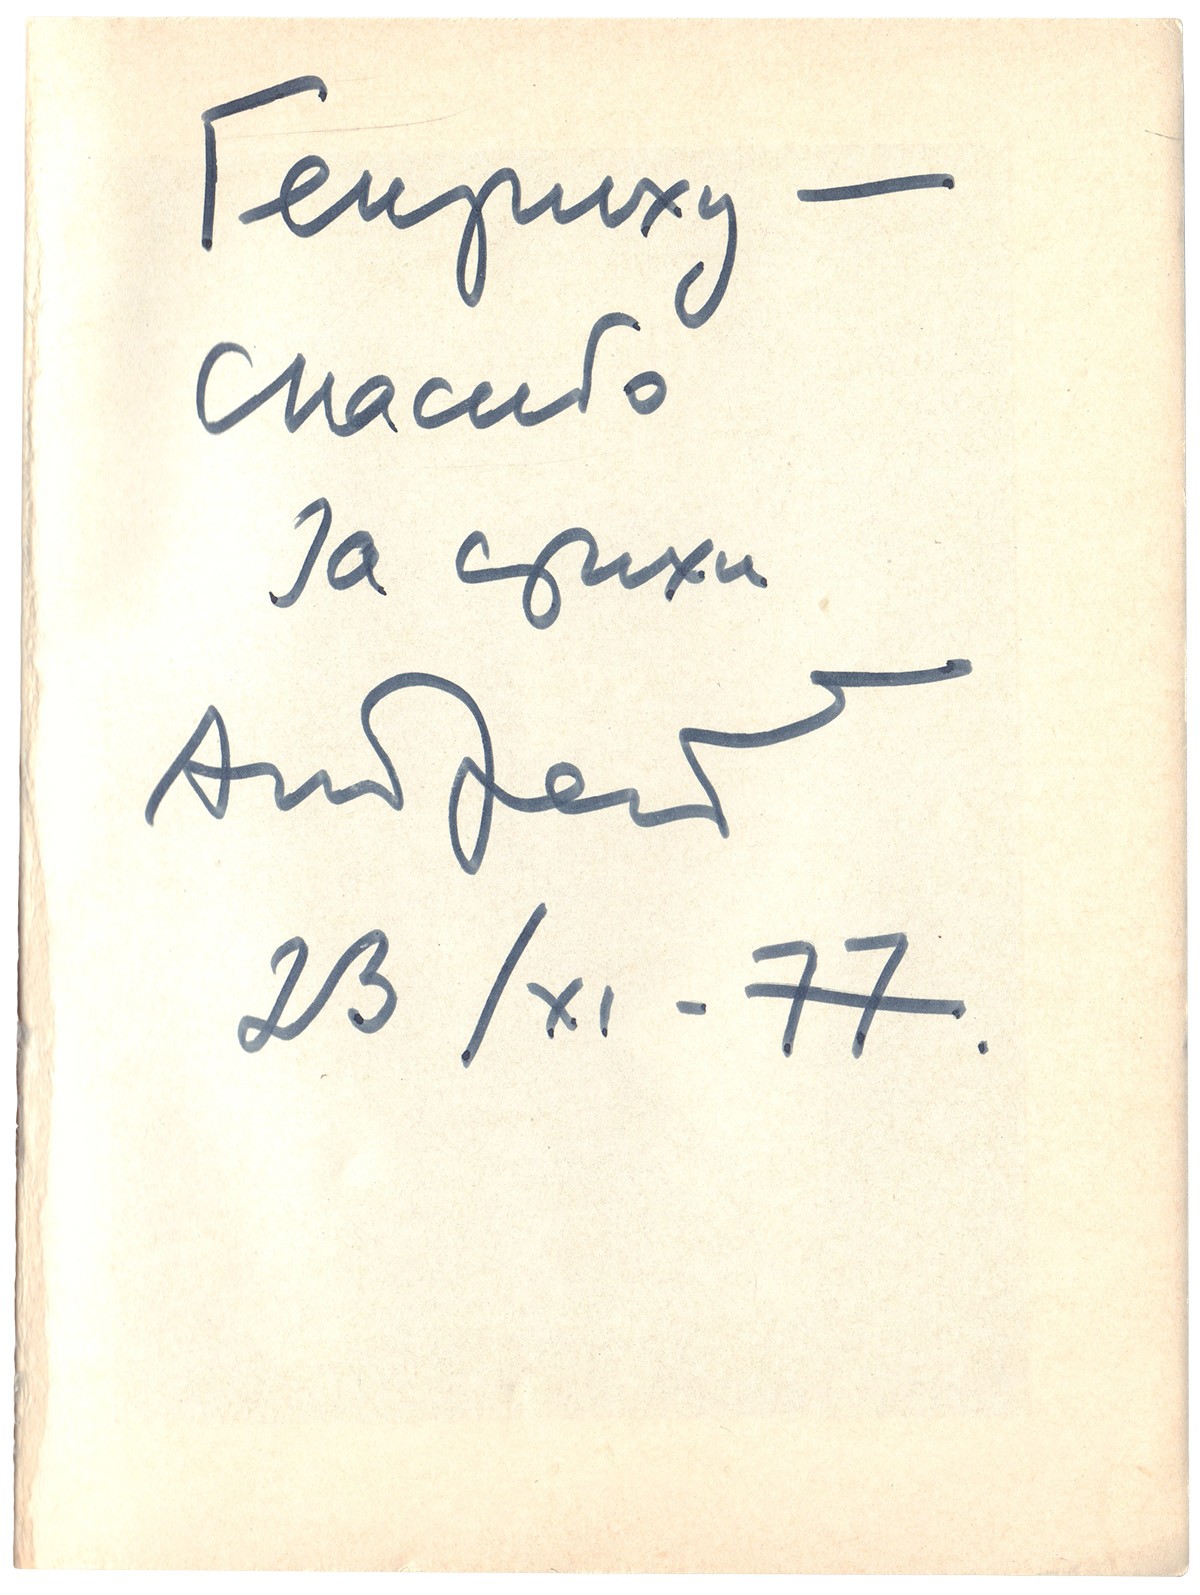 Генриху —
спасибо
за стихи
Андрей
23 /XI - 77.